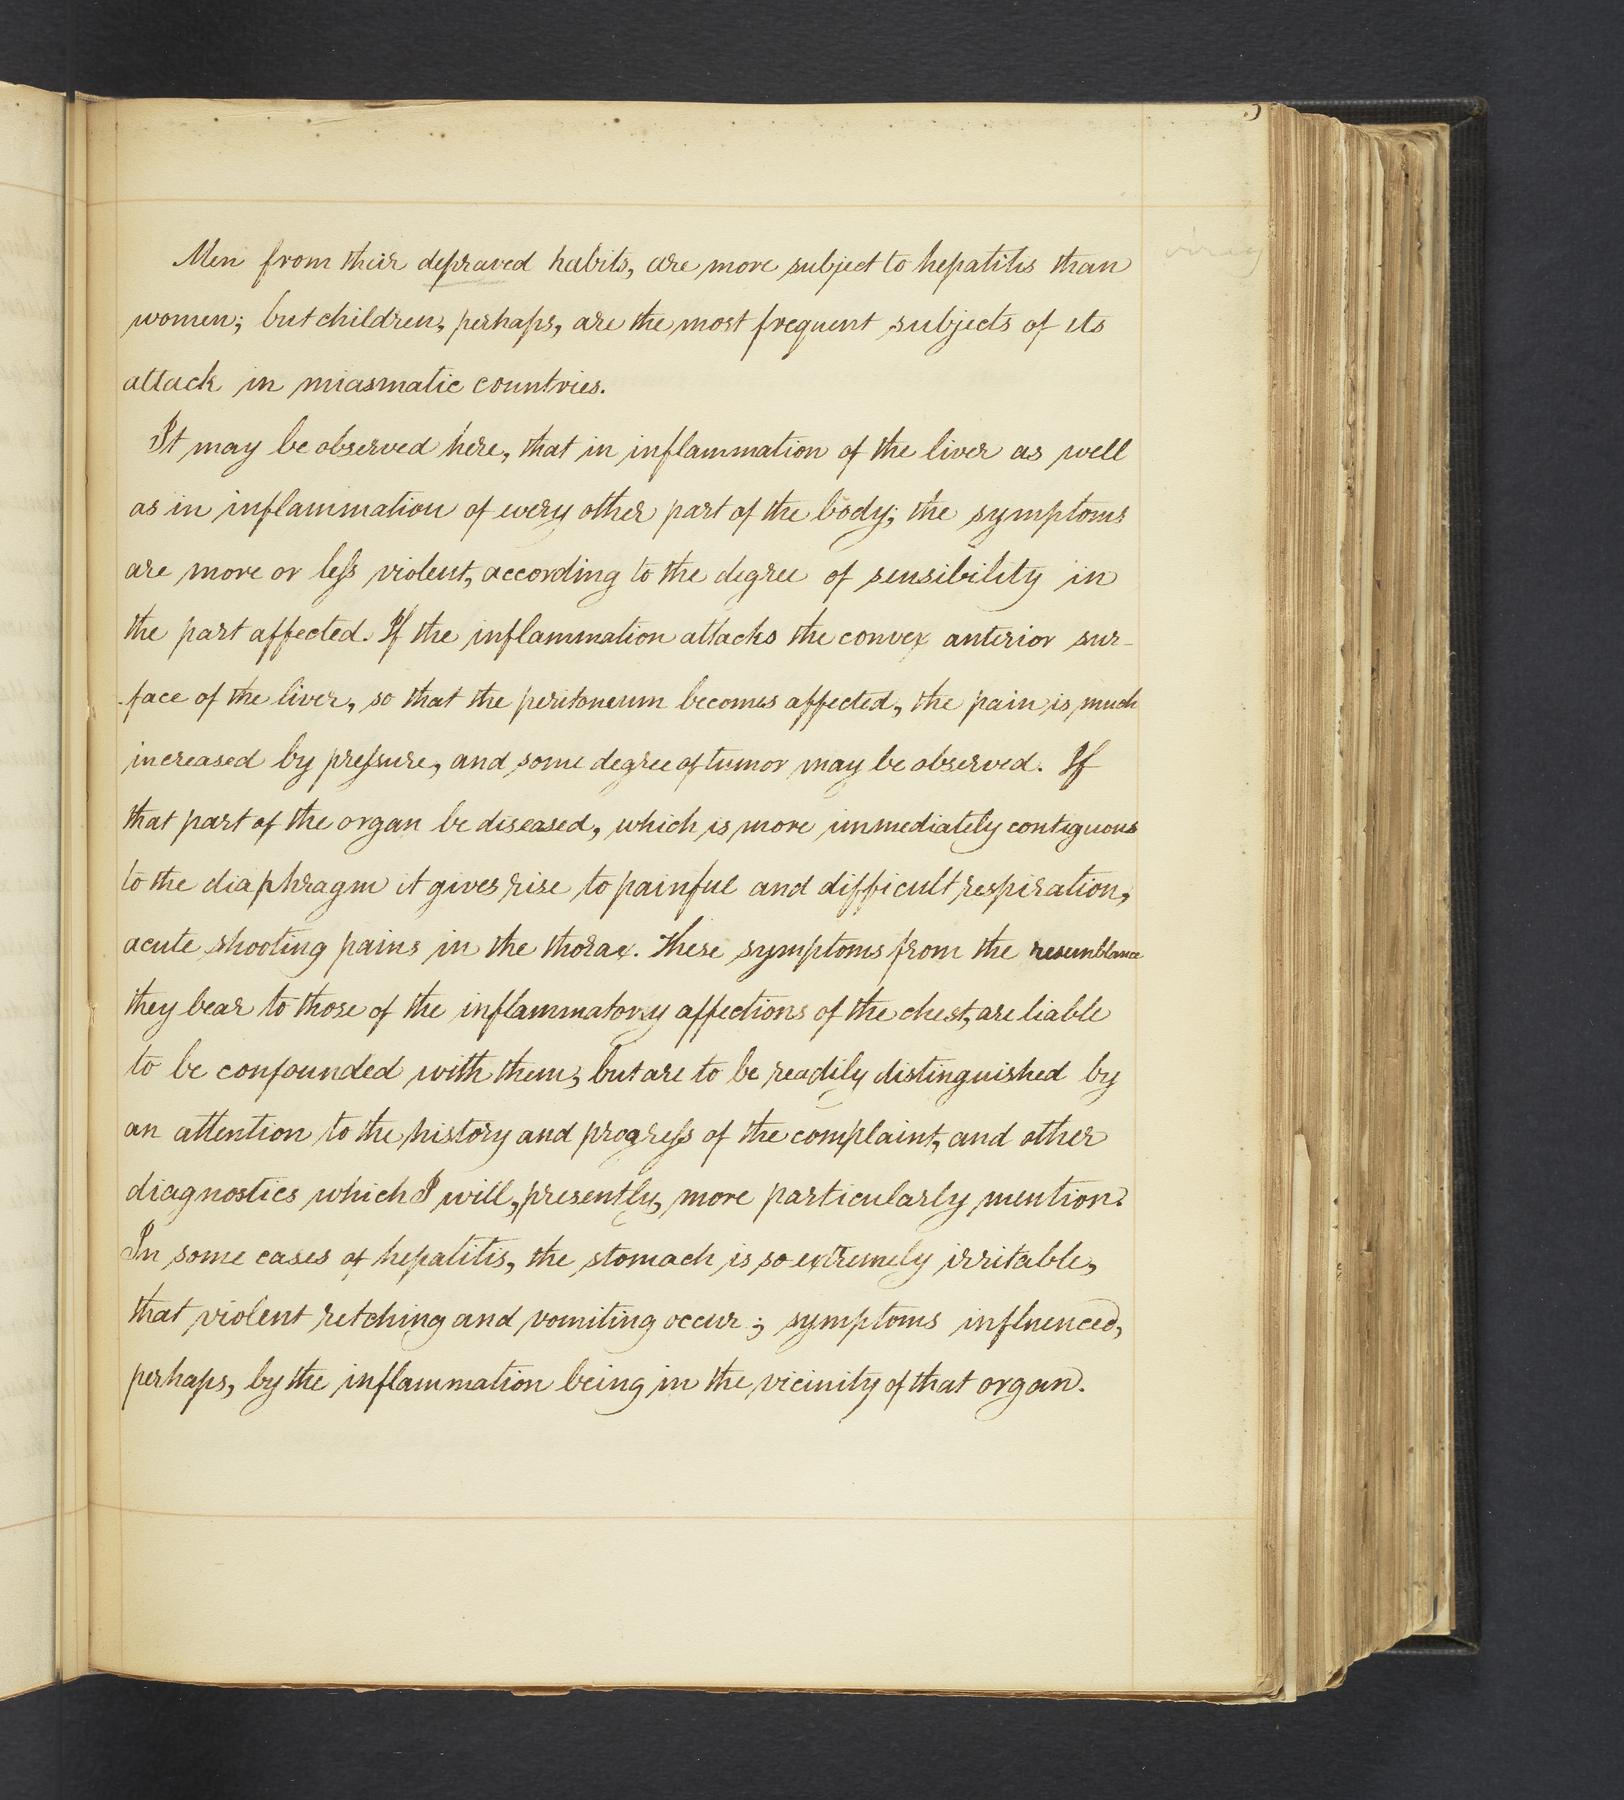 Men from their depraved habits, are more subject to hepatitis than
women; but children, perhaps, are the most frequent subjects of its
attack in miasmatic countries.
It may be observed here, that in inflammation of the liver as well
as in inflammation of every other part of the body; the symptoms
are more or less violent, according to the degree of sensibility in
the part affected. If the inflammation attacks the convex anterior sur-
face of the liver, so that the peritoneum becomes affected, the pain is much
increased by pressure, and some degree of tumor may be observed. If
that part of the organ be diseased, which is more immediately contiguous
to the diaphragm it gives rise to painful and difficult respiration,
acute shooting pains in the thorax. These symptoms from the resemblance
they bear to those of the inflammatory affections of the chest, are liable
to be confounded with them; but are to be readily distinguished by
an attention to the history and progress of the complaint, and other
diagnostics which I will, presently, more particularly mention.
In some cases of hepatitis, the stomach is so extremely irritable,
that violent retching and vomiting occur; symptoms influenced,
perhaps, by the inflammation being in the vicinity of that organ.